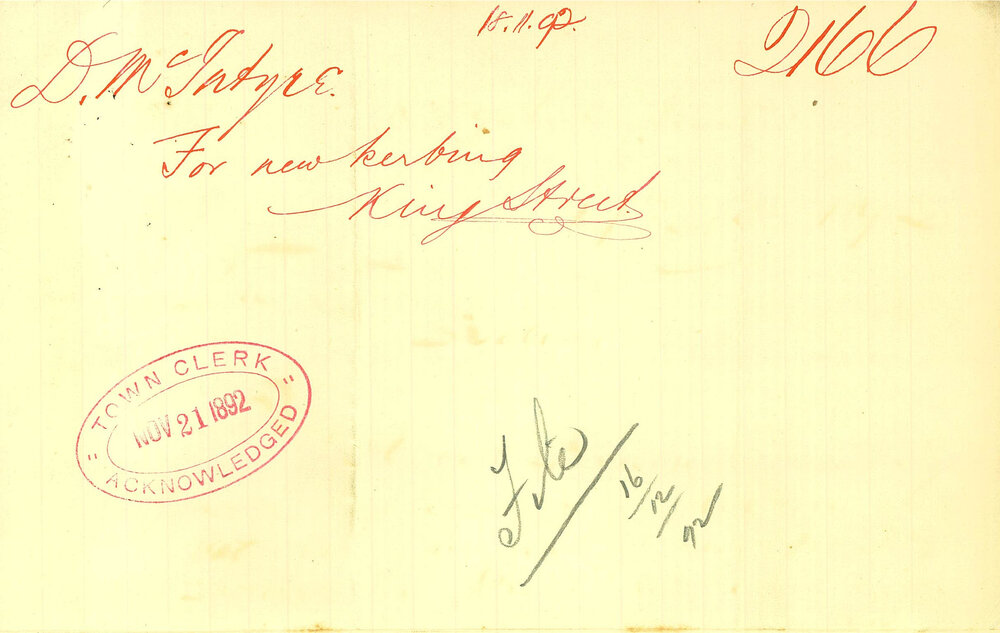 18.11.92.
2166
D. McIntyre.
For new kerbing
King Street.
" TOWN CLERK "
NOV 21 1892
ACKNOWLEDGED
File
16/12/92